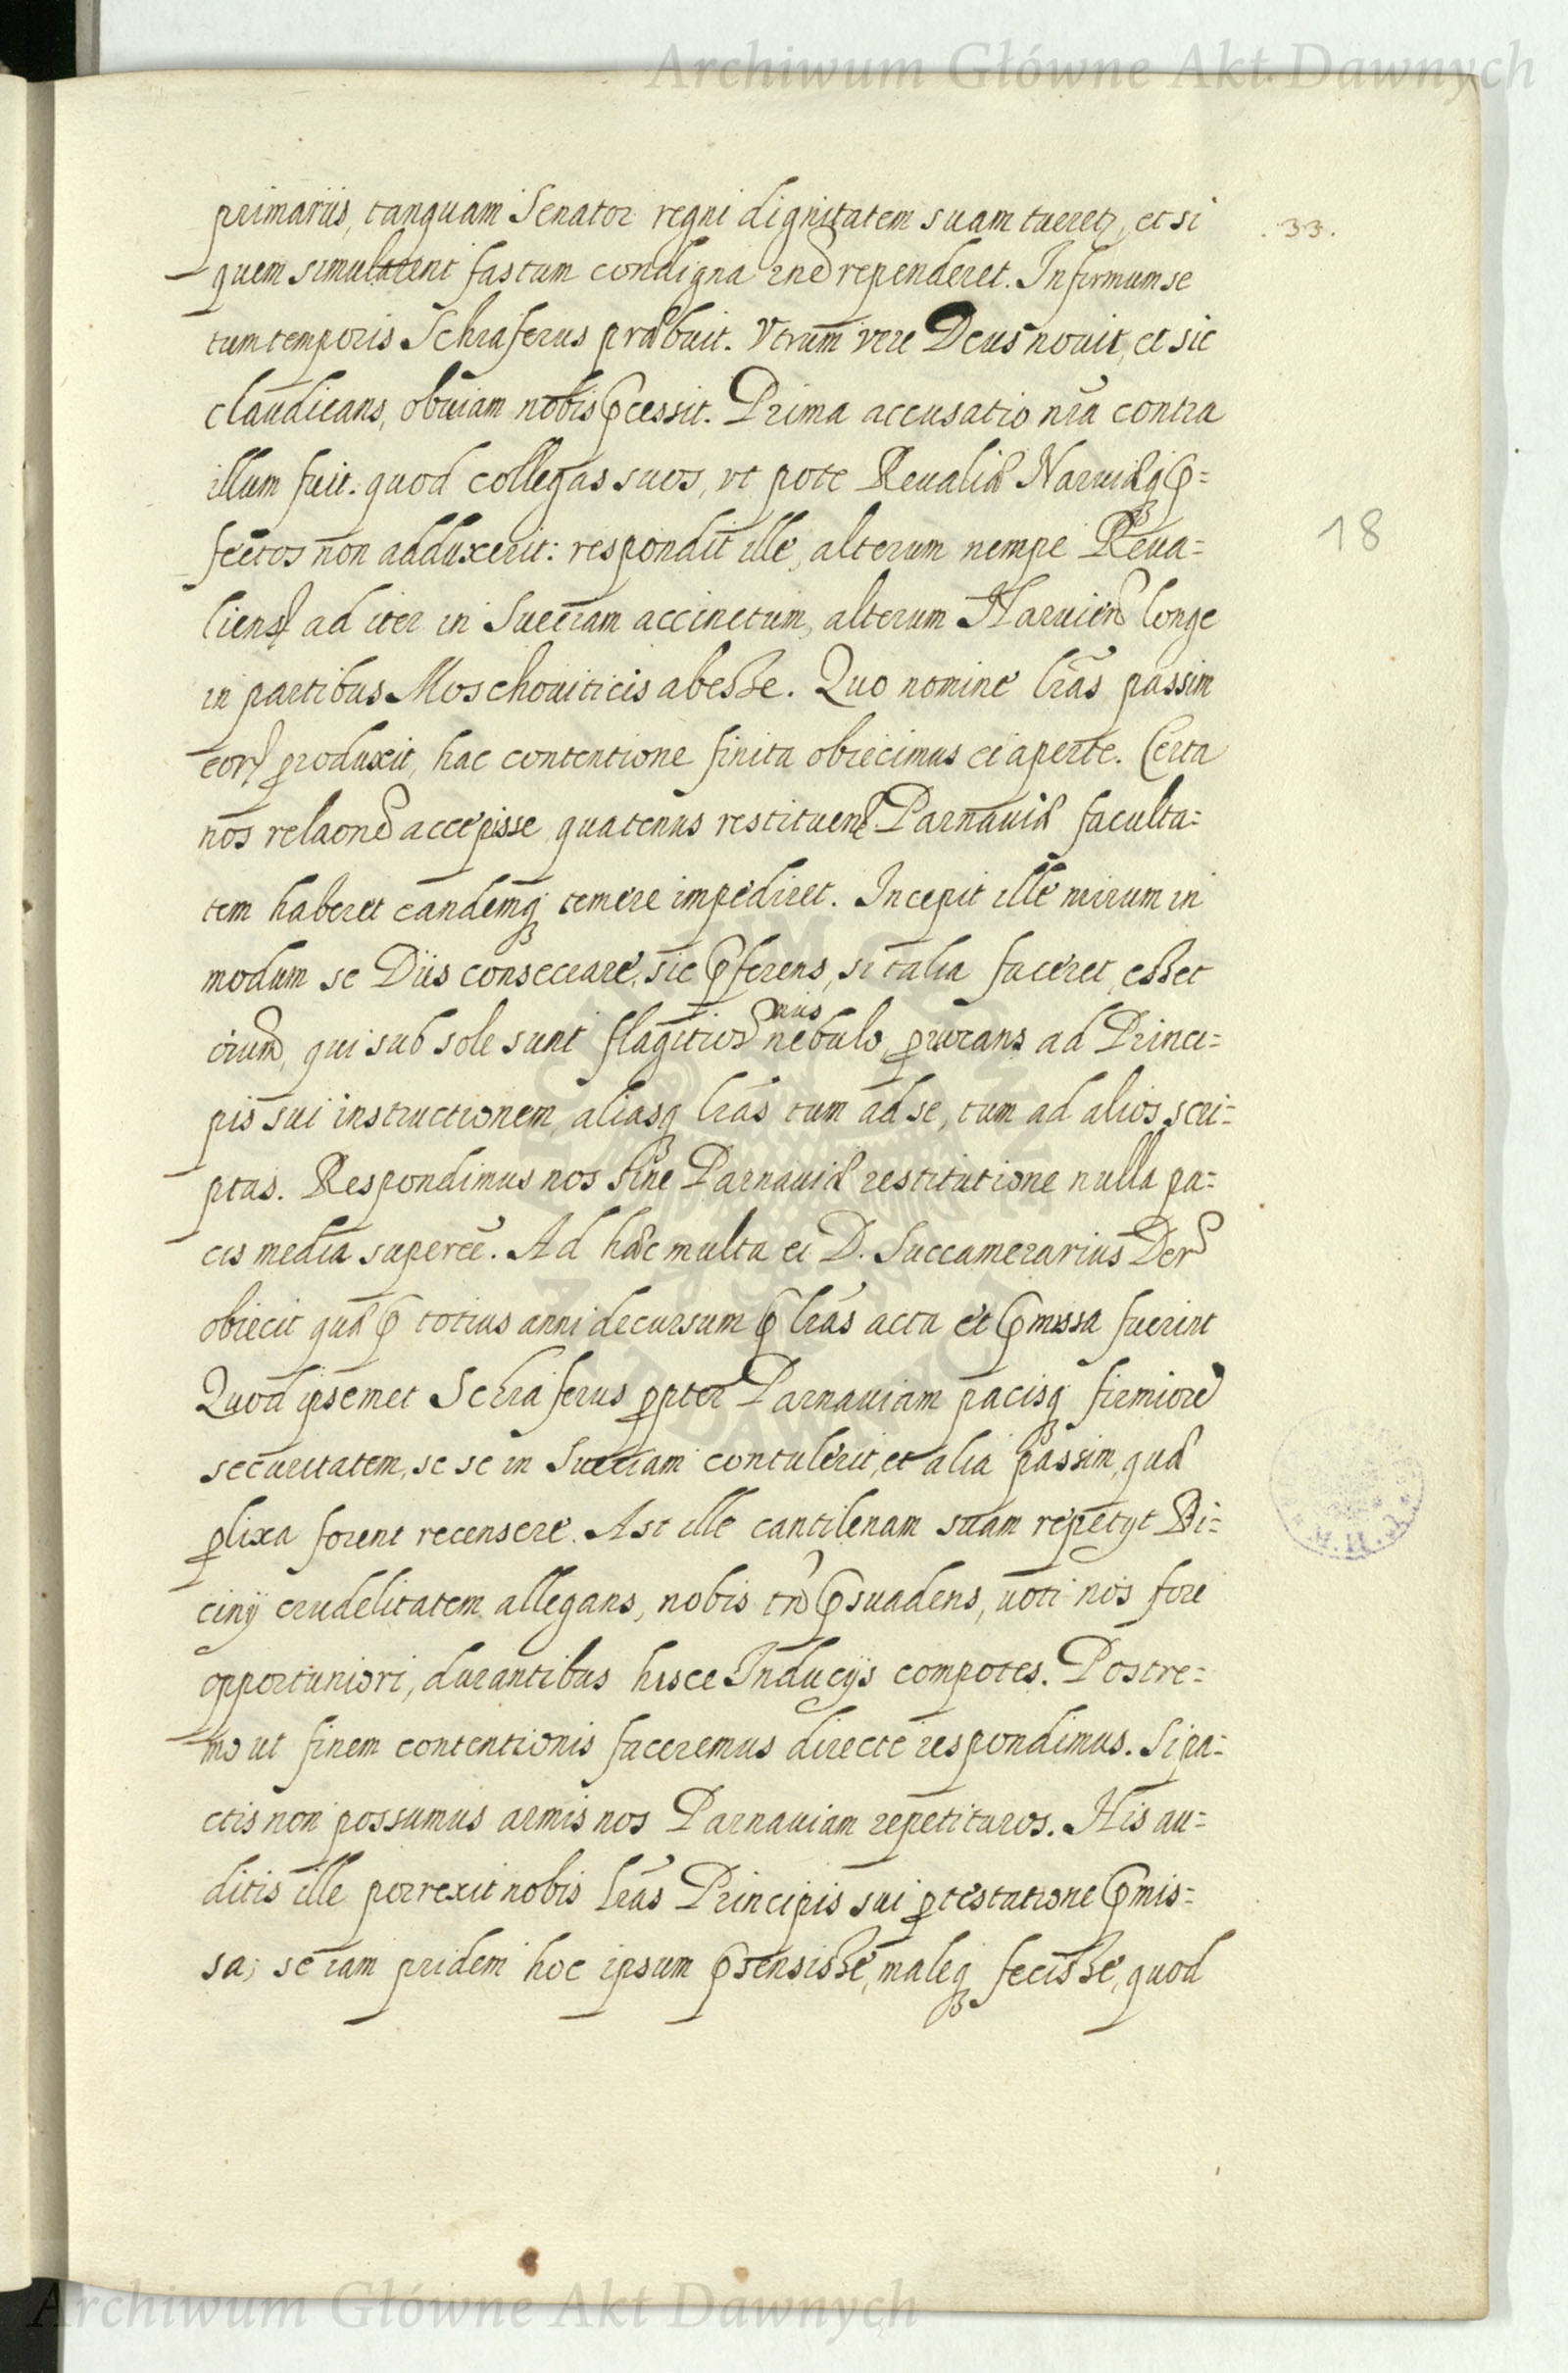 Archiwum Główne Akt Dawnych
primariis, tanquam Senator regni dignitatem suam tueretꝛ, et si
.33.
quem simularent fastum condigna rned rependeret. Infirmum se
tum temporis Schraferus præbuit. Vtrum vere Deus novit, et sic
claudicans, obuiam nobis ꝓcessit. Prima accusatio nr̃a contra
illum fuit. quod collegas suos, vt pote Reualiæ Naruiæqꝫ p̱=
fectos non adduxerit: respondit ille, alterum nempe Reua=
18
liens ad iter in Sueciam accinctum, alterum Naruien longe
in partibus Moschouiticis abesse. Quo nomine lr̃as passim
eorꝝ produxit, hac contentione finita obiecimus ei aperte. Certa
nos relaone accepisse quatenus restituenꝯ Parnauiæ faculta=
tem haberet eandemqꝫ temere impediret. Incepit ille mirum in
modum se Diis consecrare, sic p̱ferens, si talia faceret, esset
oium, qui sub sole sunt flagitios
mus
nebulo, ꝓuocans ad Princi=
pis sui instructionem, aliasqꝫ lr̃as tum ad se, tum ad alios scri=
ptas. Respondimus nos sine Parnauiæ restitutione nulla pa=
cis media superee. Ad hæc multa ei D. Succamerarius Der
obiecit quæ p̱ totius anni decursum p̱ lr̃as acta et p̱missa fuerint
Quod ipsemet Schraferus ꝓpter Parnauiam pacisqꝫ firmiore
securitatem, se se in Sueciam contulerit, et alia passim, quæ
ꝓlixa forent recensere. Ast ille cantilenam suam repetyt Ri=
cinÿ crudelitatem allegans, nobis tn̄ p̱suadens, uoti nos fore
opportuniori, durantibus hisce Inducijs compotes. Postre=
mo ut finem contentionis faceremus directe respondimus. Si pa=
ctis non possumus armis nos Parnauiam repetituros. His au=
ditis ille porrexit nobis lr̃as Principis sui ꝓtestatione p̱mis=
sa; se iam pridem hoc ipsum p̱sensisse, maleqꝫ fecisse, quod
Archiwum Główne Akt Dawnych